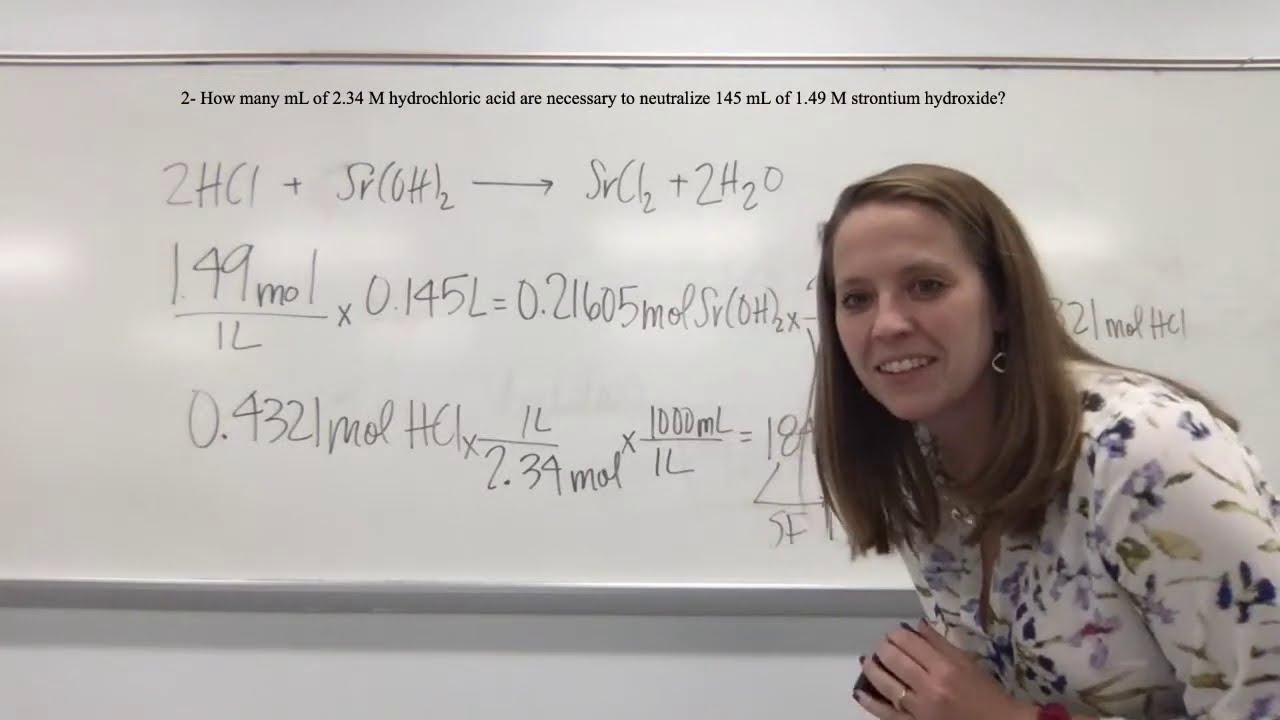 2- How many mL of 2.34 M hydrochloric acid are necessary to neutralize 145 mL of 1.49 M strontium hydroxide?
2HCl + Sr(OH)₂ ⟶ SrCl₂ + 2H₂O
1.49 mol
1L
x 0.145L = 0.21605 mol Sr(OH)₂ x
321 mol HCl
0.4321 mol HCl x
1L
2.34 mol
x
1000mL
1L
= 18
SF